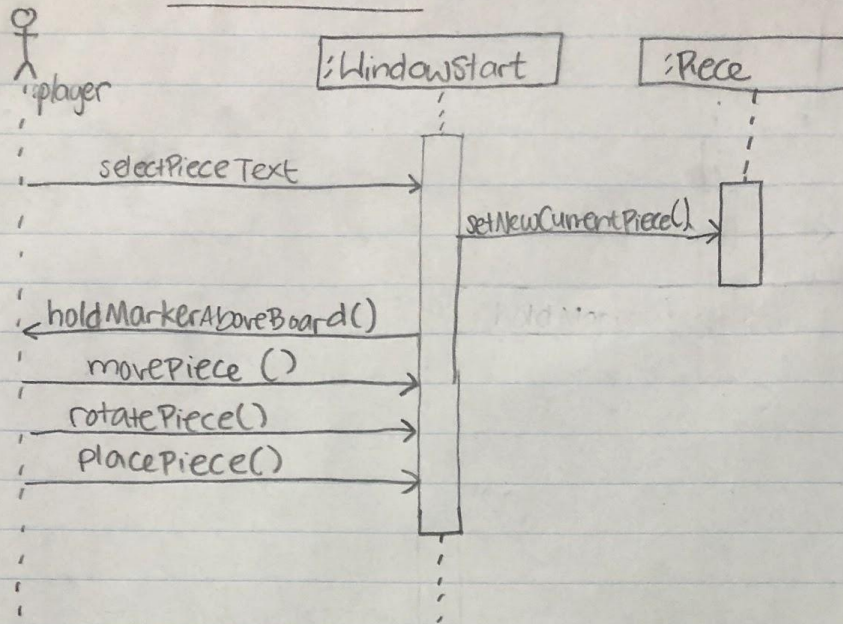 :player
:WindowStart
:Piece
selectPieceText
setNewCurrentPiece()
holdMarkerAboveBoard()
movePiece ()
rotatePiece()
placePiece()